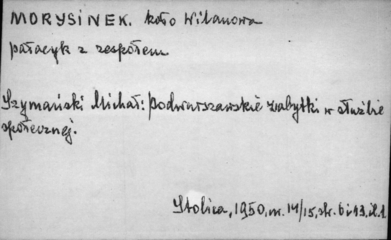 MORYSINEK. koło Wilanowa
pałacyk z zespołem
Szymański Michał: Podwarszawskie zabytki w służbie
społecznej.
Stolica, 1950, nr. 14/15, str. 6 i 13, il. 1